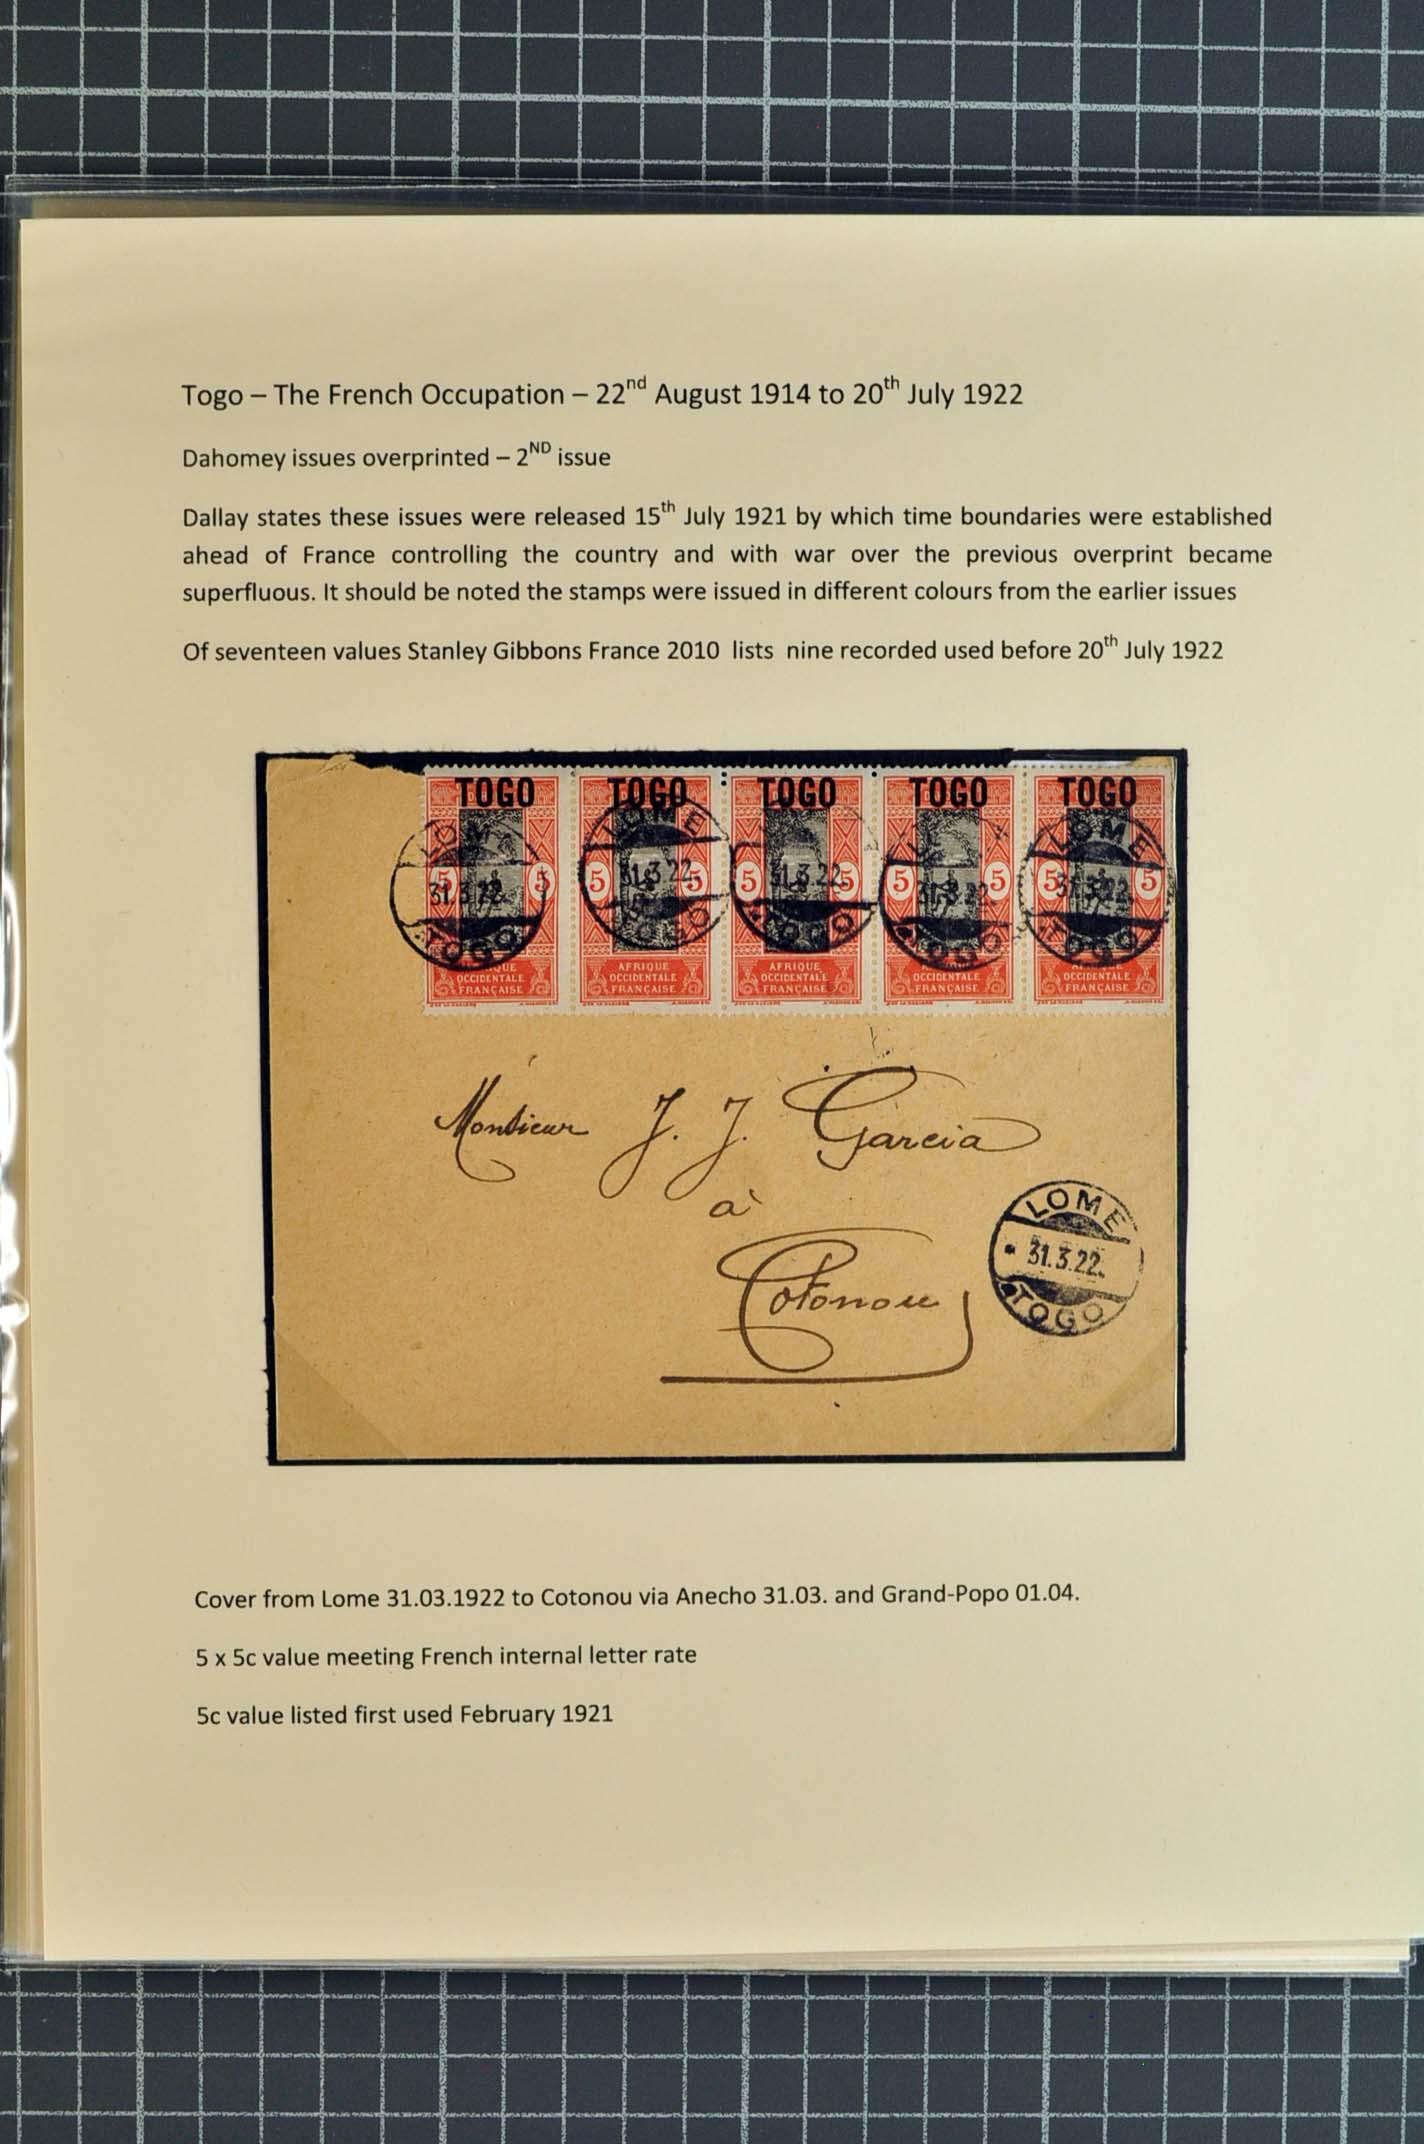 Togo – The French Occupation – 22nd August 1914 to 20th July 1922
Dahomey issues overprinted – 2ND issue
Dallay states these issues were released 15th July 1921 by which time boundaries were established
ahead of France controlling the country and with war over the previous overprint became
superfluous. It should be noted the stamps were issued in different colours from the earlier issues
Of seventeen values Stanley Gibbons France 2010 lists nine recorded used before 20th July 1922
TOGO TOGO TOGO TOGO TOGO
LOME LOME LOME
31.3.22. 31.3.22. 31.3.22. 31.3.22. 31.3.22.
5 5 5 5 5 5 5 5 5 5
TOGO TOGO TOGO TOGO TOGO
AFRIQUE AFRIQUE
OCCIDENTALE OCCIDENTALE OCCIDENTALE OCCIDENTALE OCCIDENTALE
FRANÇAISE FRANÇAISE FRANÇAISE FRANÇAISE FRANÇAISE
Monsieur J. J. Garcia
à
Cotonou
LOME
31.3.22.
TOGO
Cover from Lome 31.03.1922 to Cotonou via Anecho 31.03. and Grand-Popo 01.04.
5 x 5c value meeting French internal letter rate
5c value listed first used February 1921